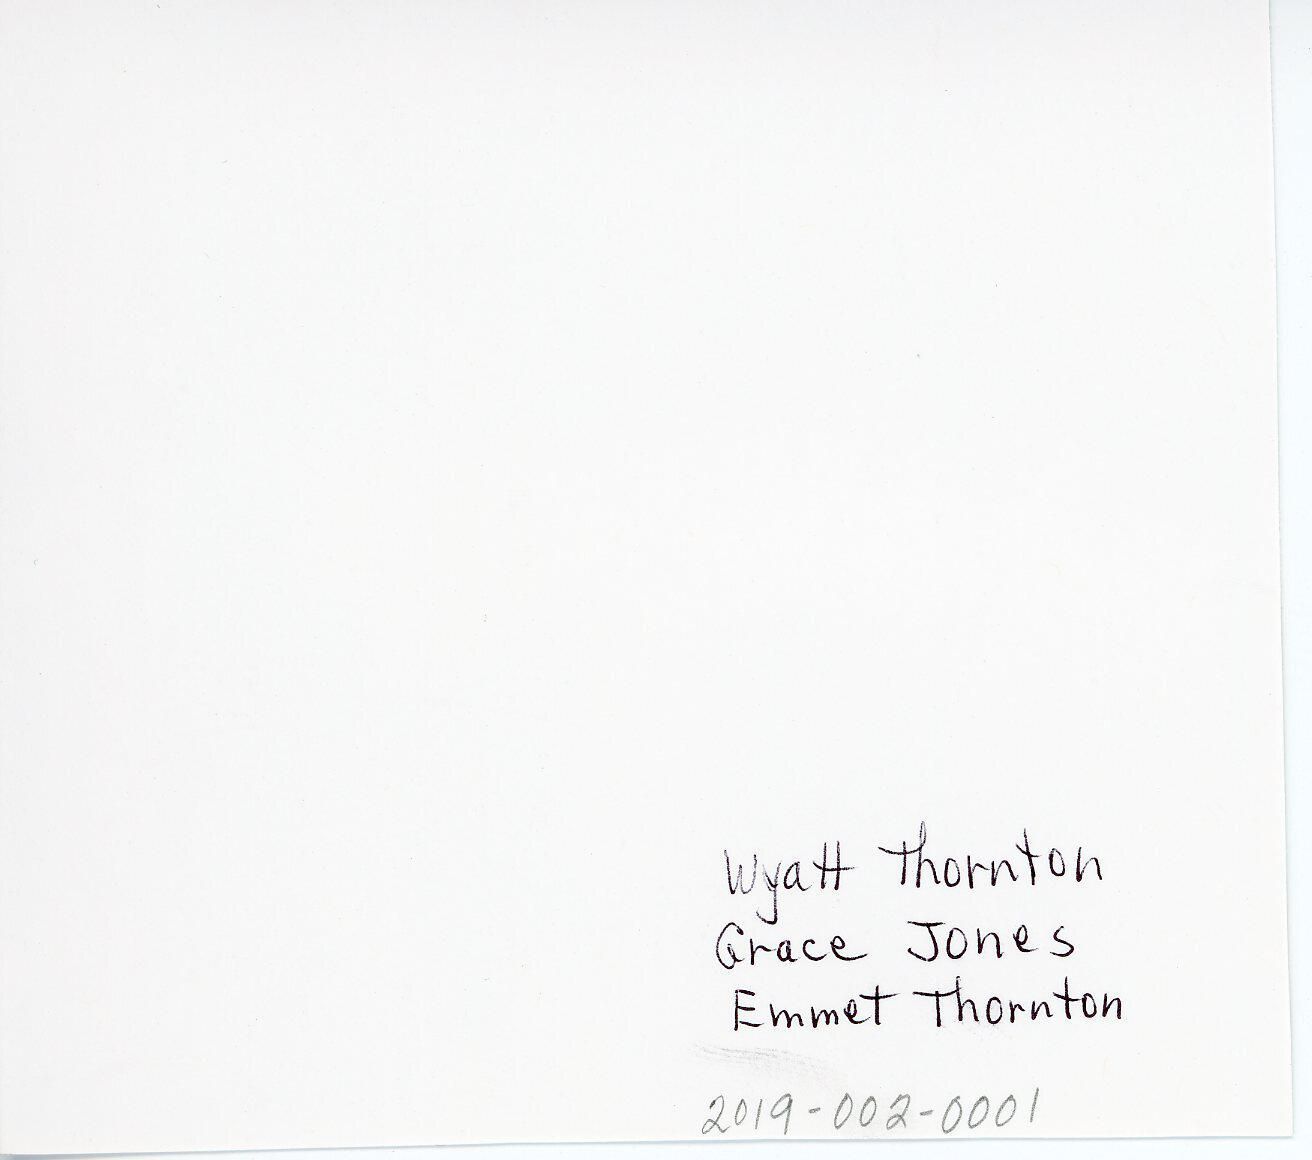 Wyatt Thornton
Grace Jones
Emmet Thornton
2019-002-0001